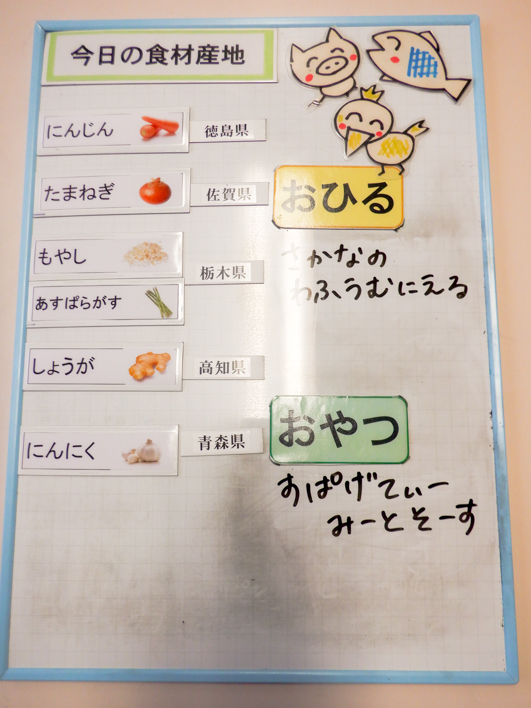 今日の食材産地
にんじん
徳島県
たまねぎ
佐賀県
もやし
栃木県
あすぱらがす
しょうが
高知県
にんにく
青森県
おひる
さかなの
わふうむにえる
おやつ
すぱげてぃー
みーとそーす